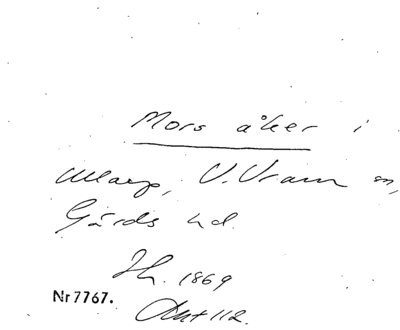 Mors åker i
Ullarp, V. Vram sn,
Gärds hd.
Jh. 1869
Nr 7767.
Akt 112.